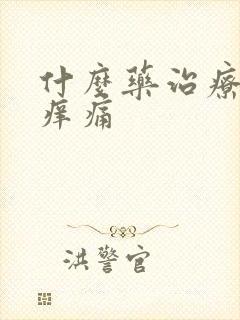 什麼藥治療
痒痛
洪警官